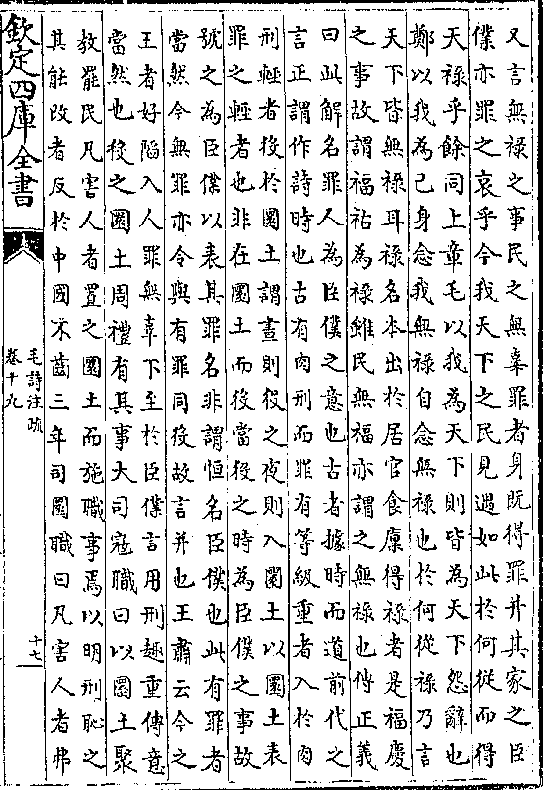 又言無祿之事民之無辜罪者身既得罪并其家之臣
僕亦罪之哀乎今我天下之民見遇如此於何從而得
天祿乎餘同上章毛以我為天下則皆為天下怨辭也
鄭以我為己身念我無祿自念無祿也於何從祿乃言
天下皆無祿耳祿名本出於居官食廩得祿者是福慶
之事故謂福祐為祿雖民無福亦謂之無祿也傳正義
曰此解名罪人為臣僕之意也古者據時而道前代之
言正謂作詩時也古有肉刑而罪有等級重者入於肉
刑輕者役於圜土謂晝則役之夜則入圜土以圜土表
罪之輕者也非在圜土而役當役之時為臣僕之事故
號之為臣僕以表其罪名非謂恒名臣僕也此有罪者
當然今無罪亦令與有罪同役故言并也王肅云今之
王者好陷入人罪無辜下至於臣僕言用刑趣重傳意
當然也役之圜土周禮有其事大司寇職曰以圜土聚
教罷民凡害人者置之圜土而施職事焉以明刑恥之
其能改者反於中國不齒三年司圜職曰凡害人者弗
欽定四庫全書
毛詩注疏
卷十九
十七